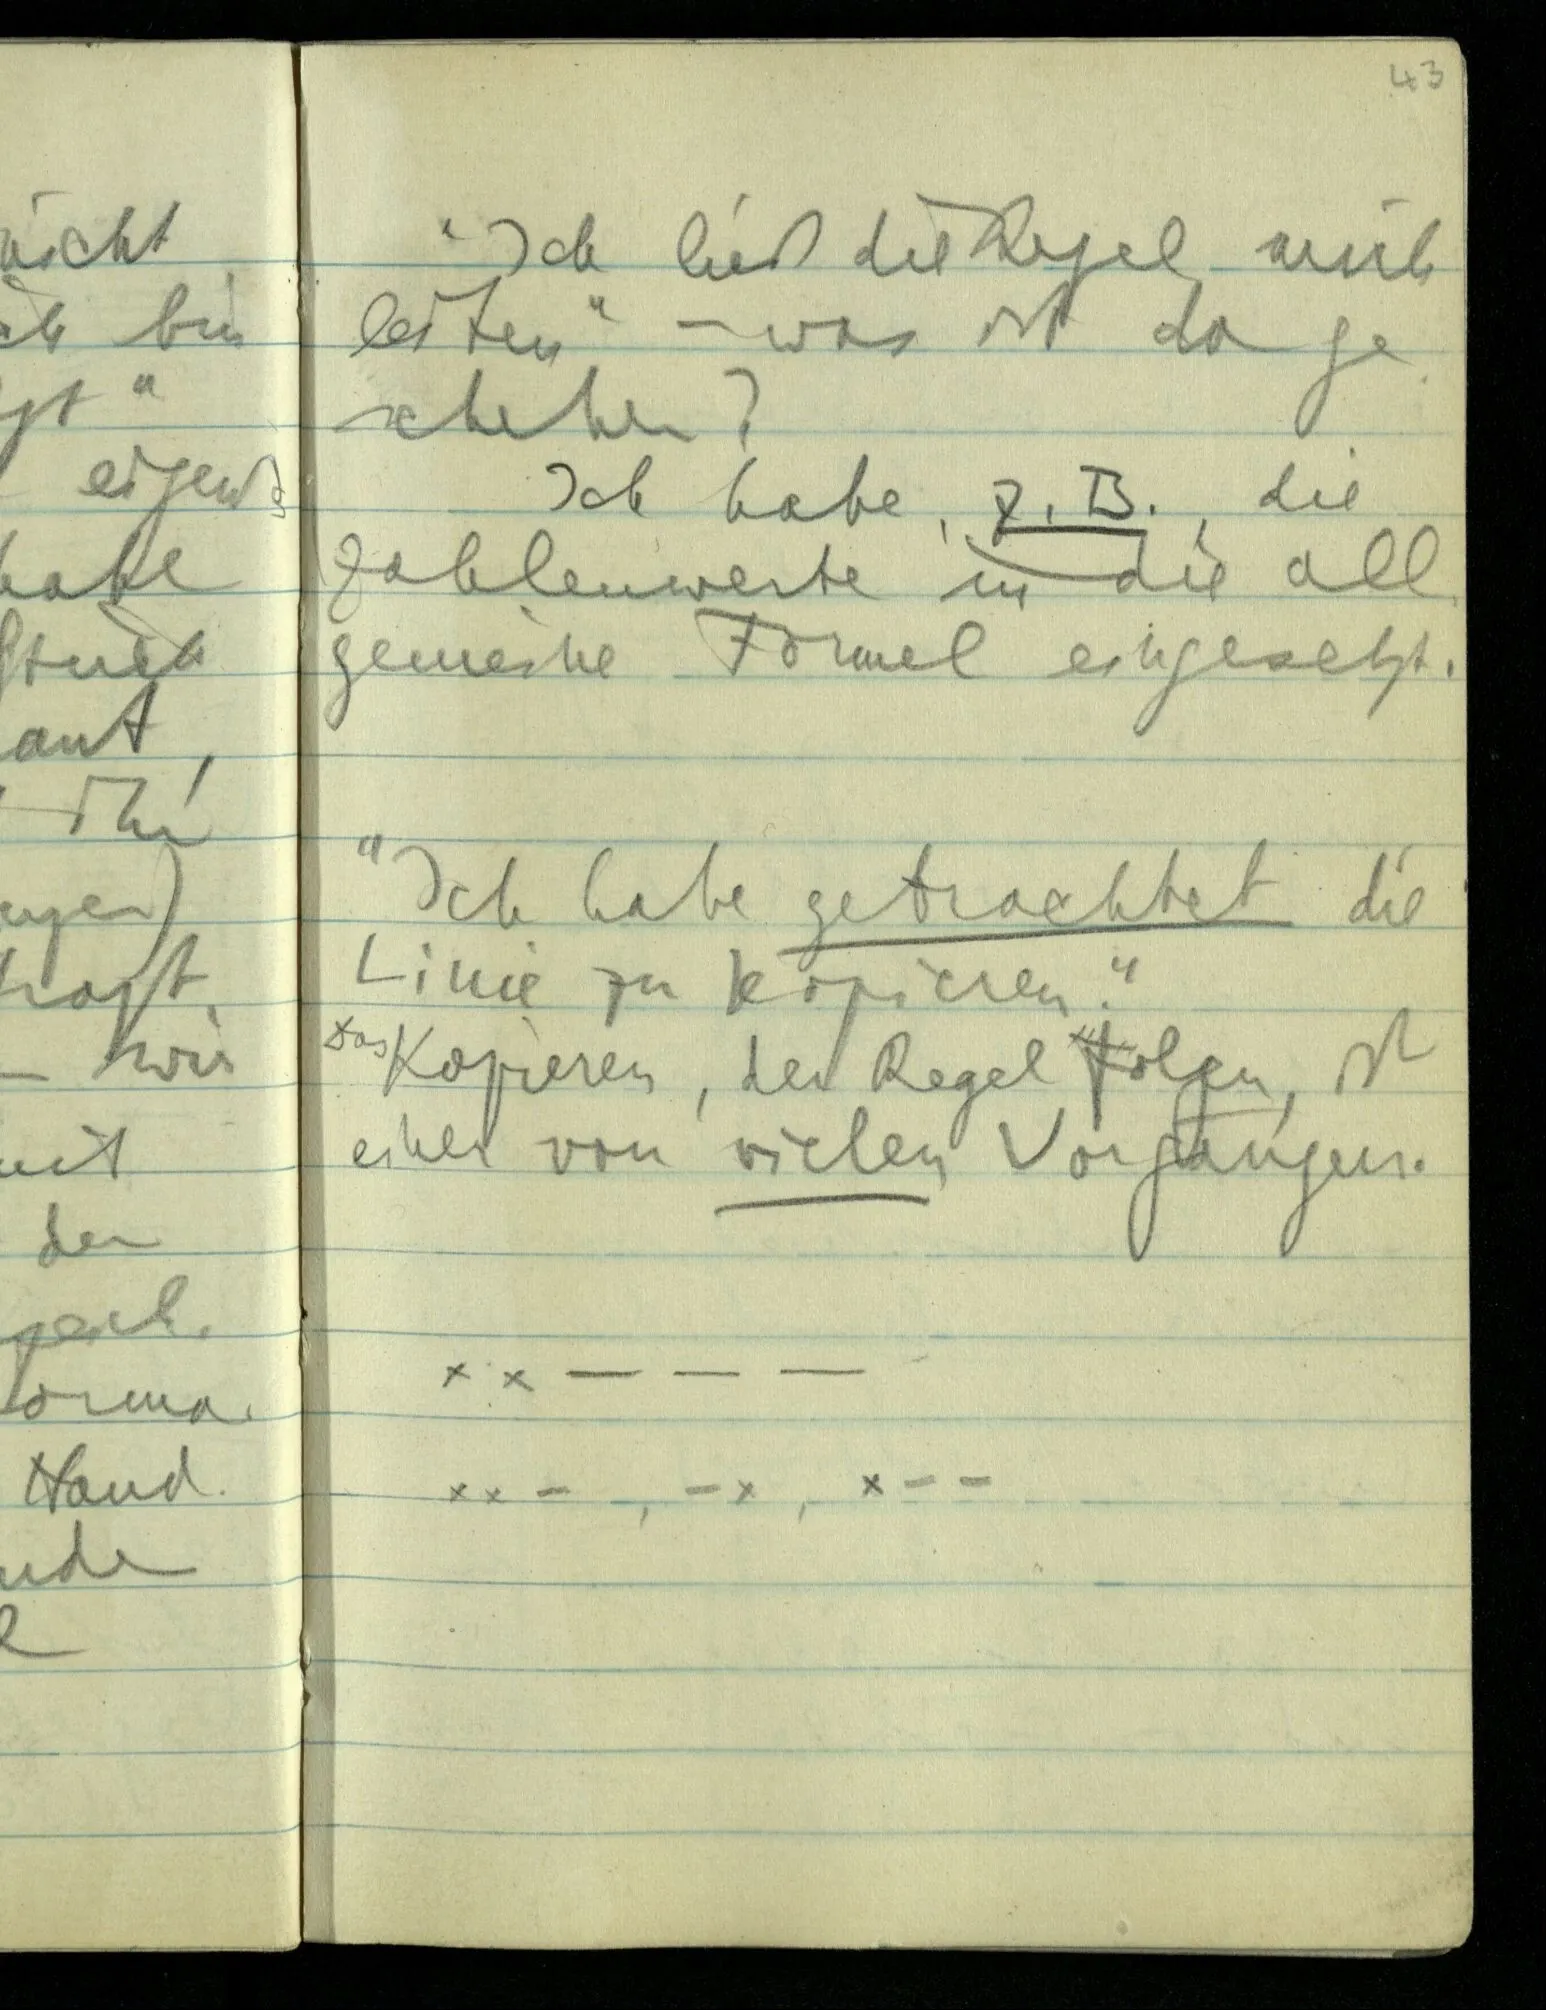 43
nicht
ich bin
"
eigent
habe
ant,
ihn
ungen)
wir
mit
den
Hand.
"Ich ließ die Regel mich
leiten" – was ist da ge
schehen?
Ich habe, z. B., die
Zahlenwerte in die all
gemeine Formel eingesetzt.
"Ich habe getrachtet die
Linie zu kopieren."
Das Kopieren, der Regel Folgen, ist
einer von vielen Vorgängen.
x x — — —
x x – , – x , x – –